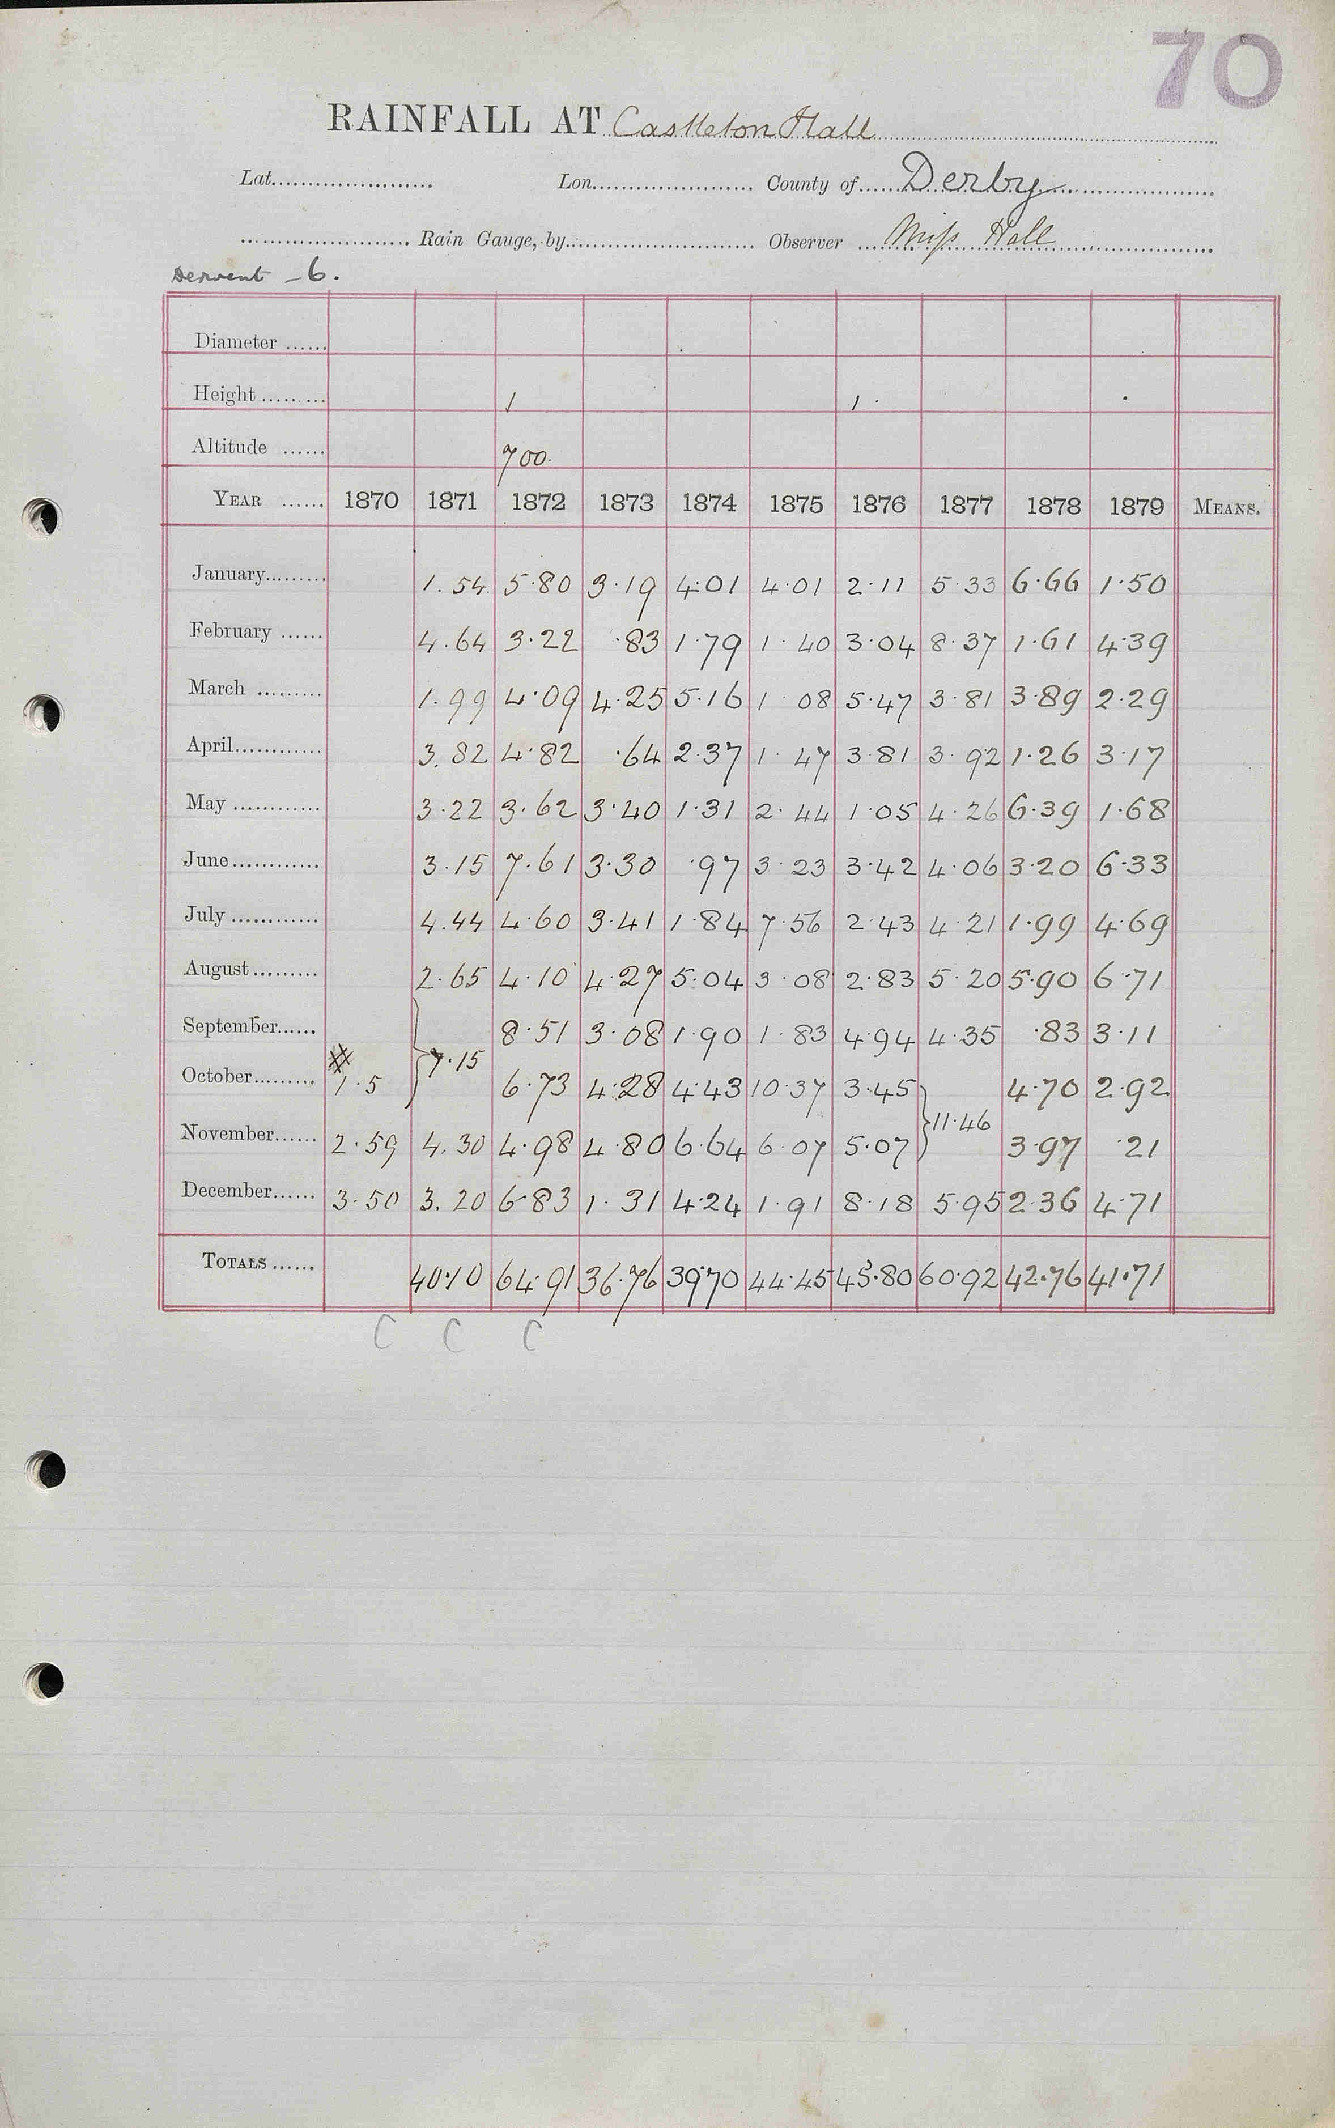 70
RAINFALL AT Castleton Hall
Lat. Lon. County of Derby
Rain Gauge, by Observer Miss Hall
Derwent - 6.
Diameter
Height 1 1
Altitude 700
YEAR 1870 1871 1872 1873 1874 1875 1876 1877 1878 1879 MEANS.
January 1.54 5.80 3.19 4.01 4.01 2.11 5.33 6.66 1.50
February 4.64 3.22 .83 1.79 1.40 3.04 8.37 1.61 4.39
March 1.99 4.09 4.25 5.16 1 08 5.47 3.81 3.89 2.29
April 3.82 4.82 .64 2.37 1.47 3.81 3.92 1.26 3.17
May 3.22 3.62 3.40 1.31 2.44 1.05 4.26 6.39 1.68
June 3.15 7.61 3.30 .97 3.23 3.42 4.06 3.20 6.33
July 4.44 4.60 3.41 1.84 7.56 2.43 4.21 1.99 4.69
August 2.65 4.10 4.27 5.04 3 08 2.83 5.20 5.90 6.71
September 8.51 3.08 1.90 1.83 4.94 4.35 .83 3.11
7.15
October 1.5 6.73 4.28 4.43 10.37 3.45 4.70 2.92
11.46
November 2.59 4.30 4.98 4.80 6.64 6.07 5.07 3.97 .21
December 3.50 3.20 6.83 1.31 4.24 1.91 8.18 5.95 2.36 4.71
TOTALS 40.10 64.91 36.76 39.70 44.45 45.80 60.92 42.76 41.71
C C C